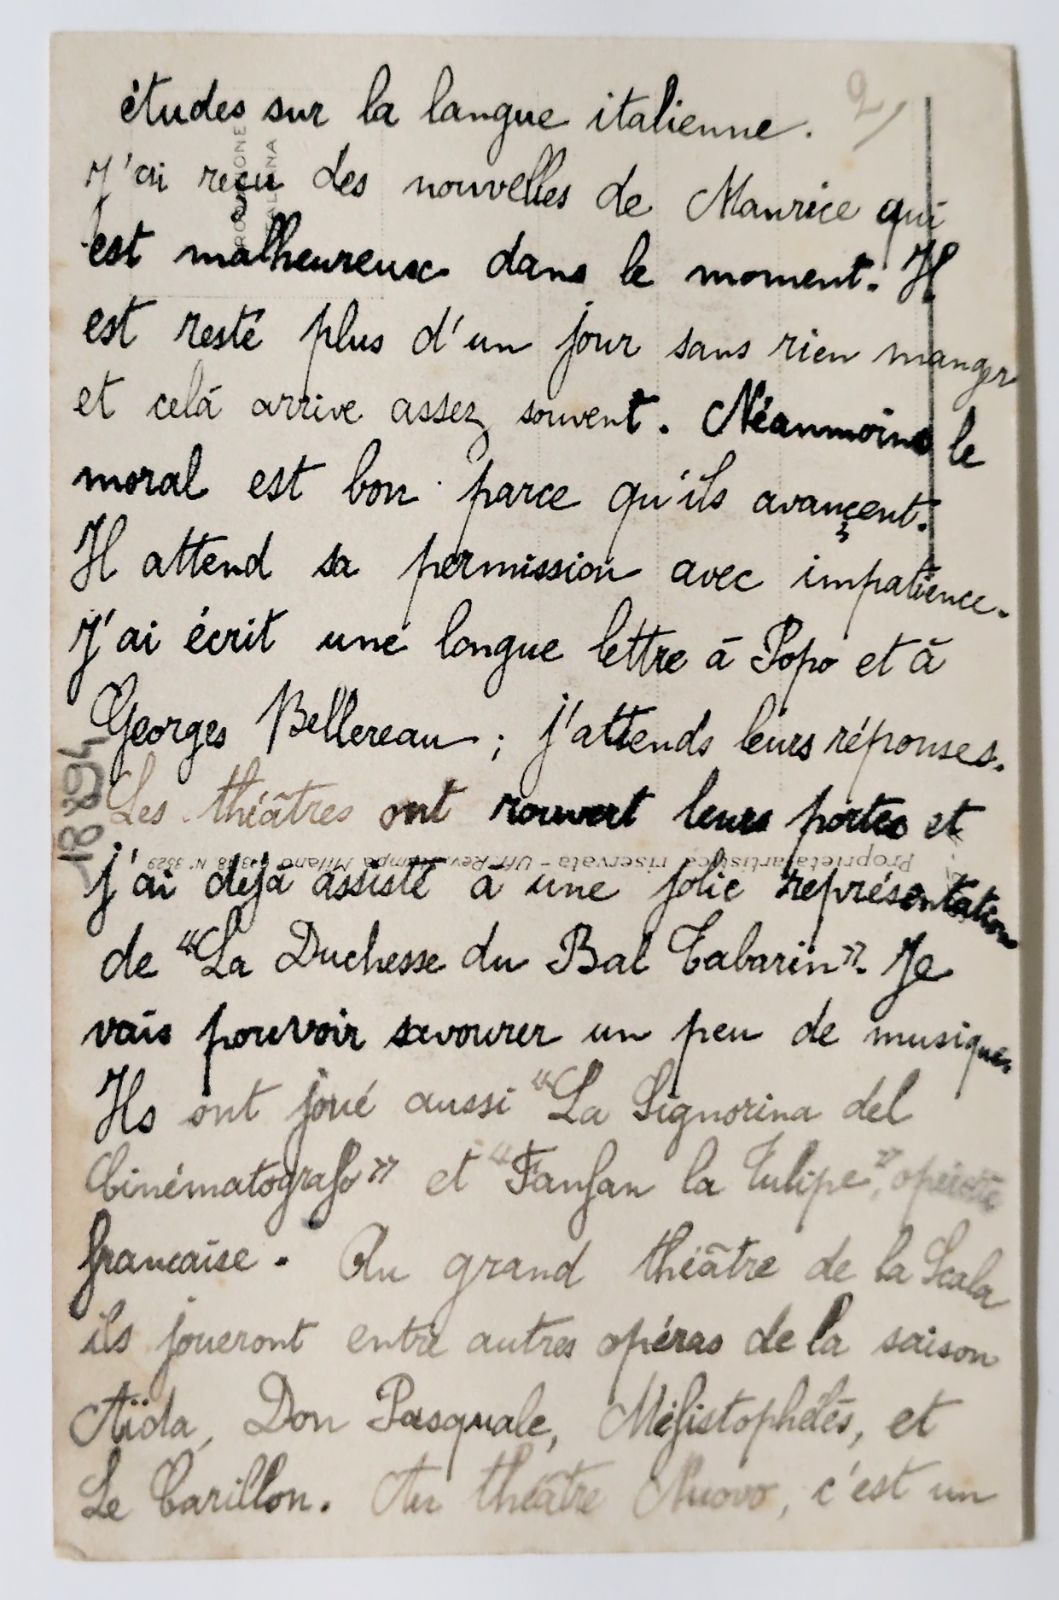 2/
études sur la langue italienne.
J'ai reçu des nouvelles de Maurice qui
est malheureux dans le moment. Il
est resté plus d'un jour sans rien manger
et celà arrive assez souvent. Néanmoins le
moral est bon parce qu'ils avançent.
Il attend sa permission avec impatience.
J'ai écrit une longue lettre à Popo et à
Georges Bellereau ; j'attends leurs réponses.
Les théâtres ont rouvert leurs portes et
j'ai déjà assisté à une jolie représentation
de "La Duchesse du Bal Tabarin". Je
vais pouvoir savourer un peu de musique.
Ils ont joué aussi "La Signorina del
Cinématografo" et "Fanfan la Tulipe", opérette
française. Au grand théâtre de la Scala
ils joueront entre autres opéras de la saison
Aïda, Don Pasquale, Méfistophélès, et
Le Carillon. Au théâtre Nuovo, c'est un
18894
Proprietà artistica riservata - Uff. Rev. Stampa Milano N. 3529